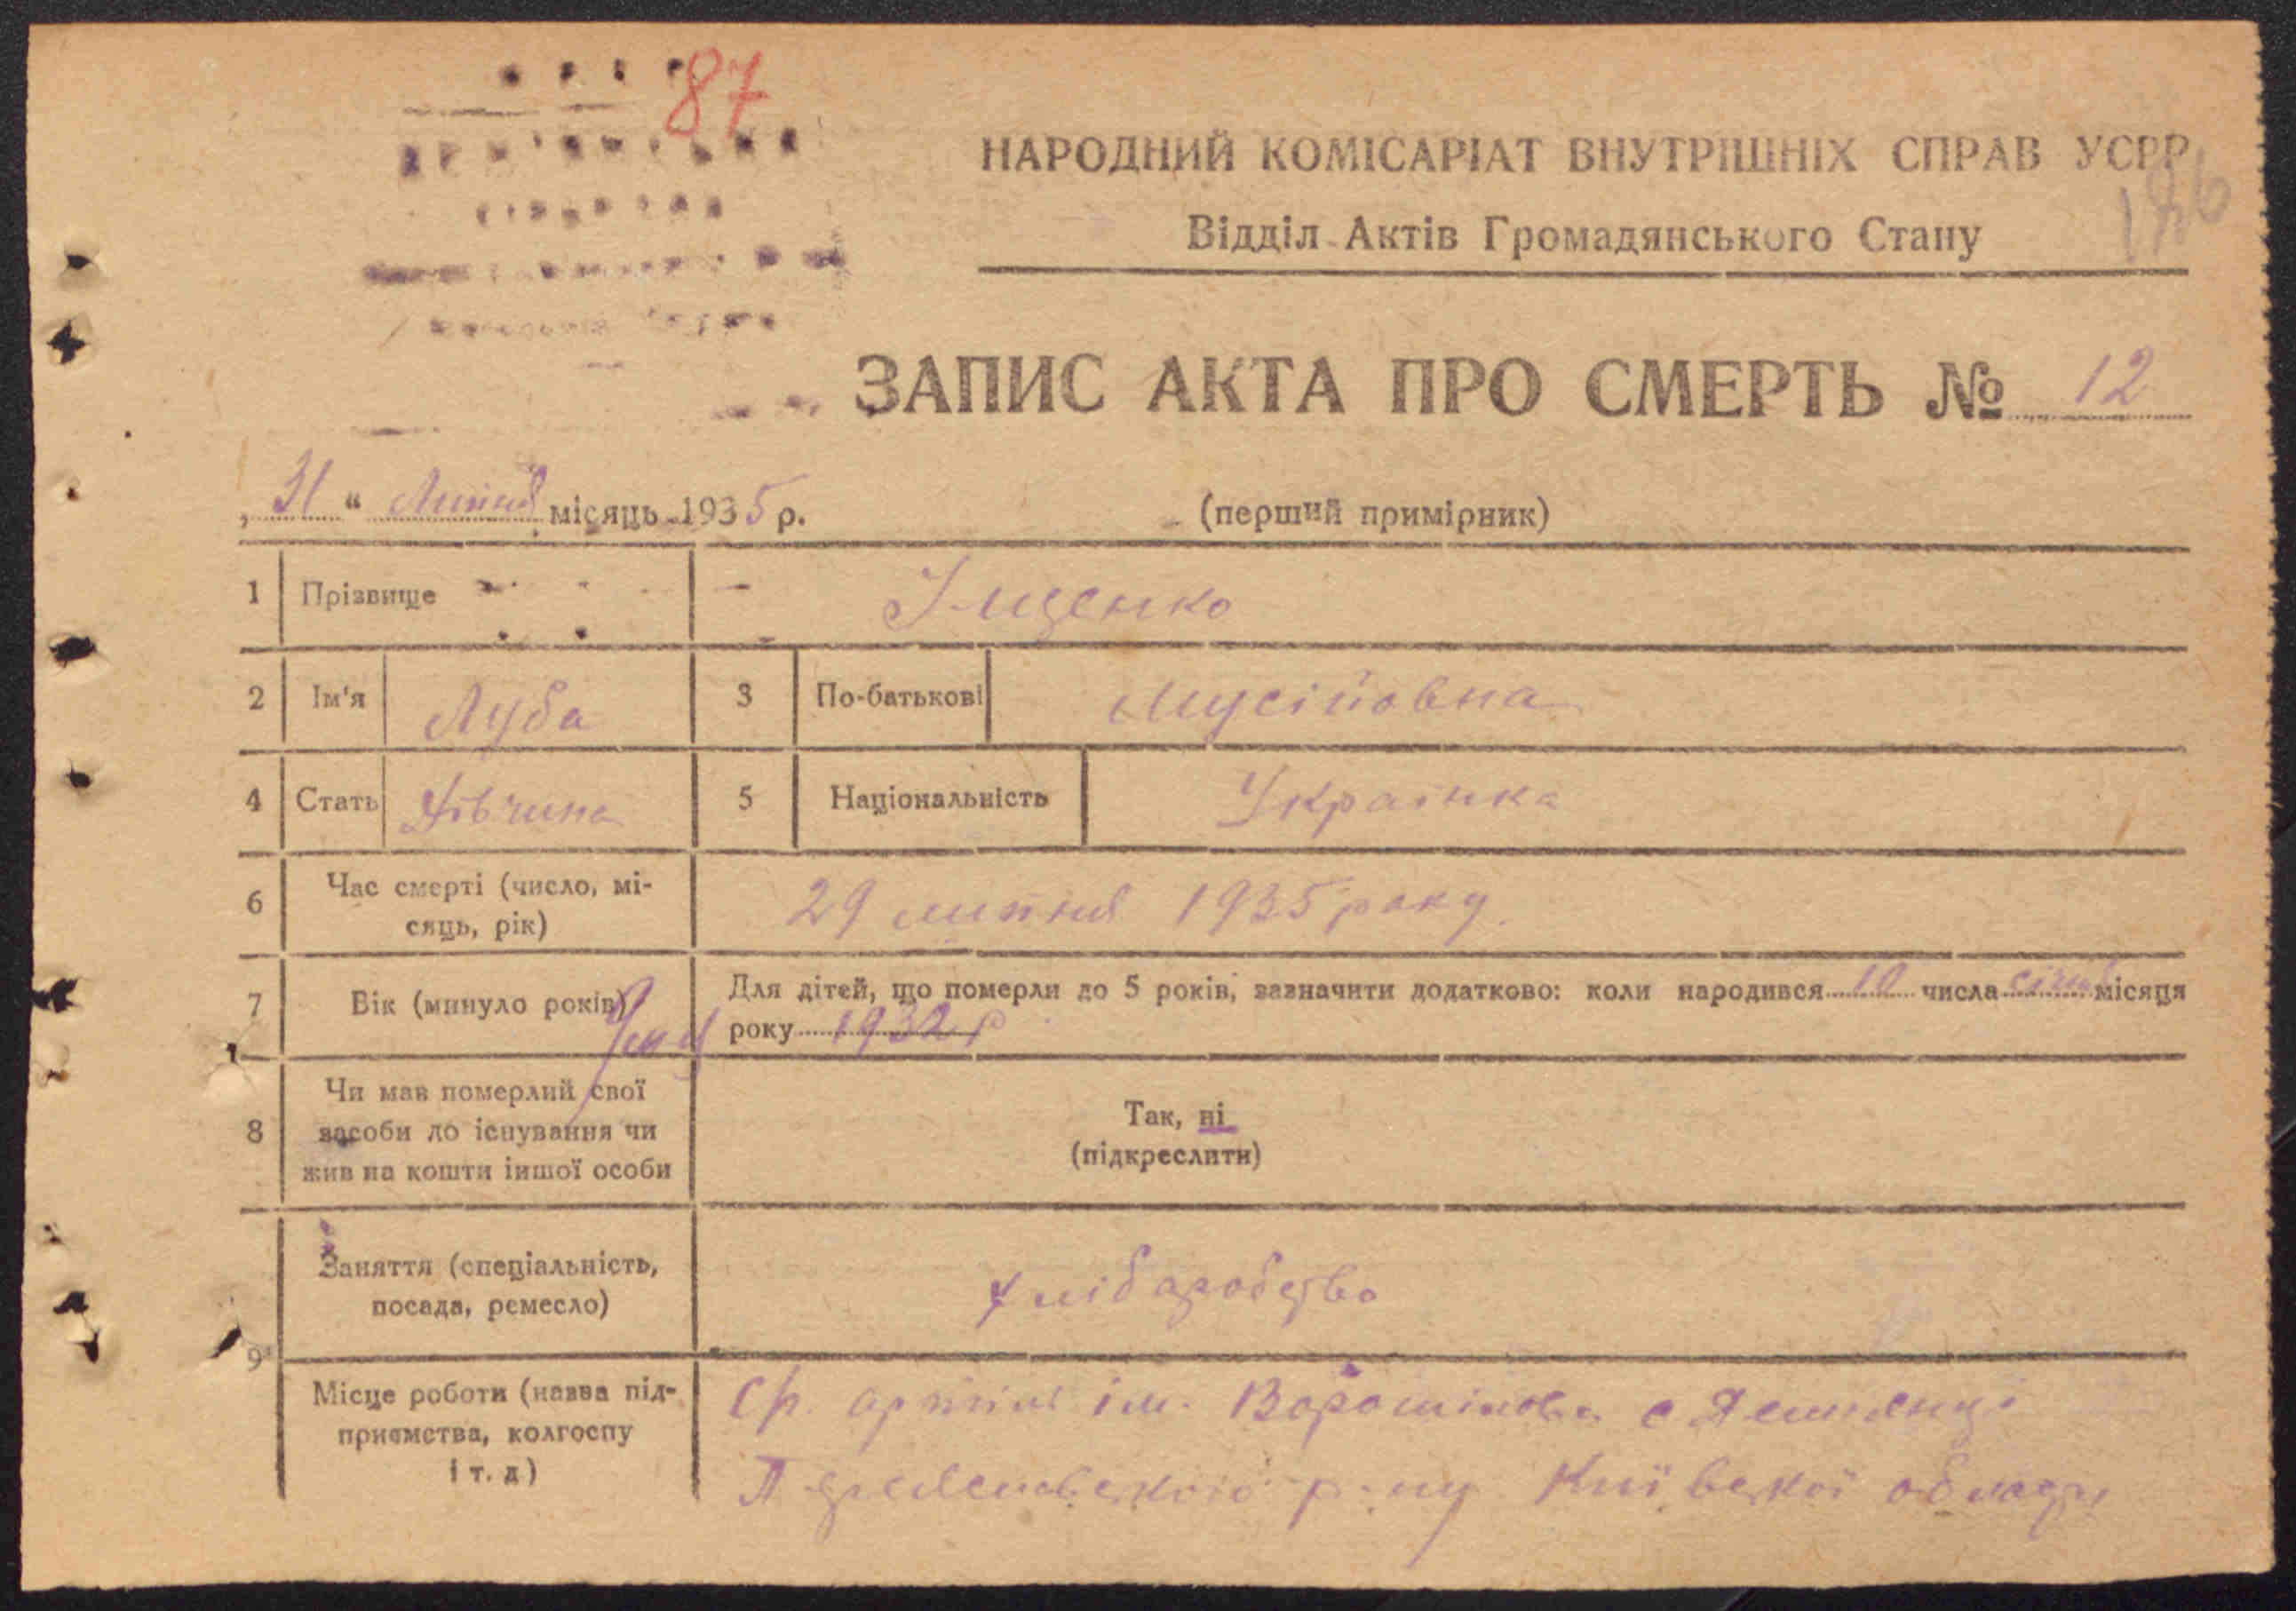 87
НАРОДНИЙ КОМІСАРІАТ ВНУТРІШНІХ СПРАВ УСРР
Відділ Актів Громадянського Стану
ЗАПИС АКТА ПРО СМЕРТЬ № 12
„31“ Липня місяць 1935 р. (перший примірник)
1 Прізвище Іщенко
2 Ім'я Люба 3 По-батькові Мусійовна
4 Стать Дівчина 5 Національність Українка
6 Час смерті (число, мі-
сяць, рік) 29 липня 1935 року
7 Вік (минуло років) Для дітей, що померли до 5 років, зазначити додатково: коли народився 10 числа січня місяця
року 1932 р
8 Чи мав померлий свої
засоби до існування чи
жив на кошти іншої особи
Так, ні
(підкреслити)
9 Заняття (спеціальність,
посада, ремесло) хліборобство
Місце роботи (назва під-
приємства, колгоспу
і т. д)
с/г. артіль ім. Ворошилова с
р-ну Київської області